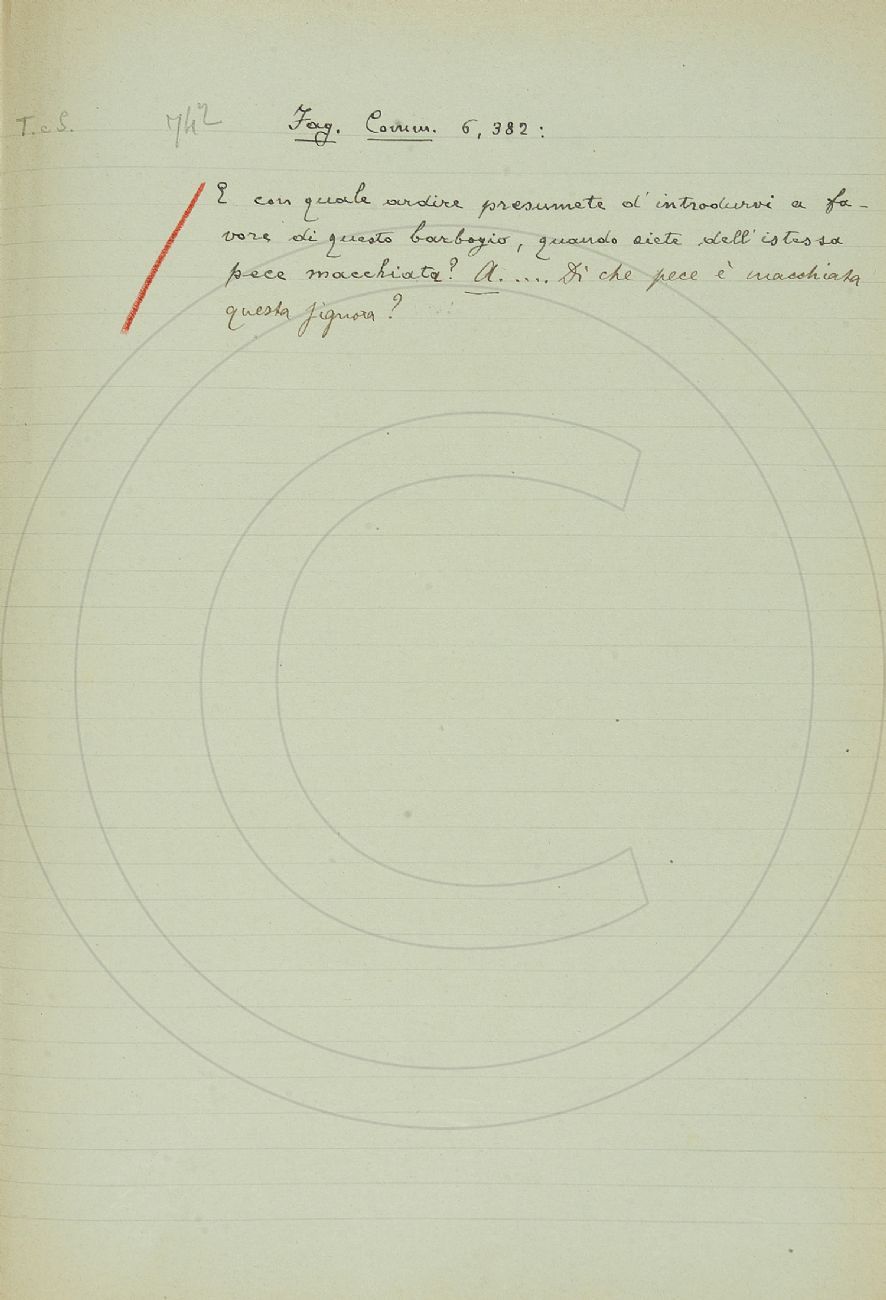 T. e S. Fag. Comm. 6, 382:
E con quale ardire presumete d'introdurvi a fa-
vore di questo barbogio, quando siete dell'istessa
pece macchiata? A. .... Di che pece è macchiata
questa signora?